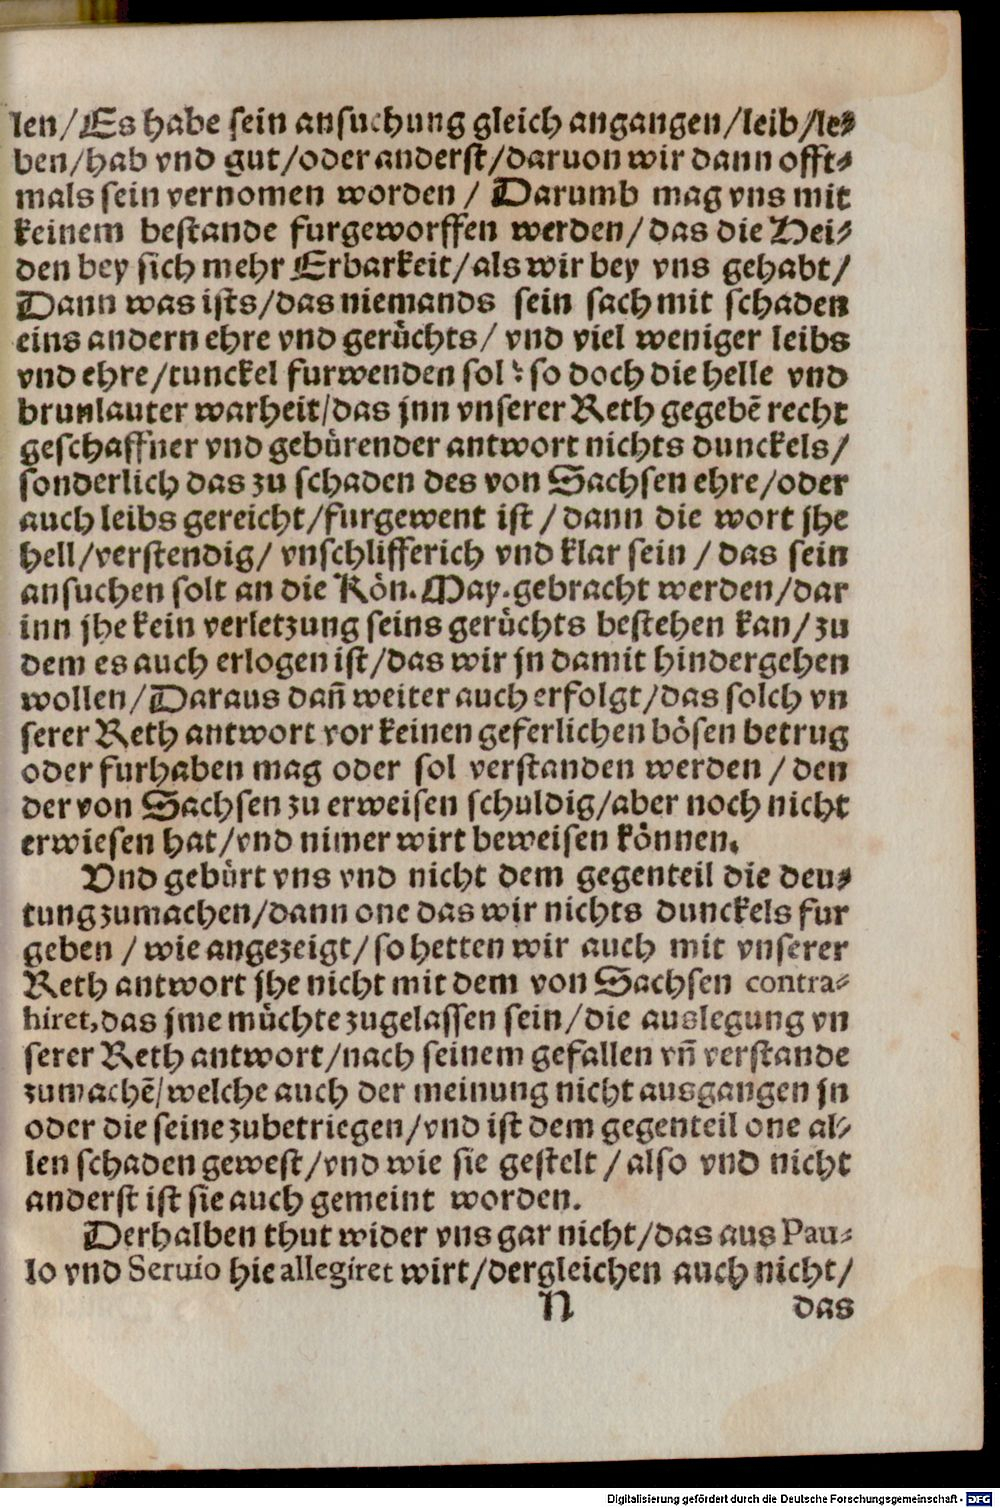 len/Es habe sein ansuchung gleich angangen/leib/le⸗
ben/hab vnd gut/oder anderst/daruon wir dann offt⸗
mals sein vernomen worden / Darumb mag vns mit
keinem bestande furgeworffen werden/das die Hei⸗
den bey sich mehr Erbarkeit/als wir bey vns gehabt/
Dann was ists/das niemands sein sach mit schaden
eins andern ehre vnd gerůchts/ vnd viel weniger leibs
vnd ehre/tunckel furwenden sol? so doch die helle vnd
brunlauter warheit/das jnn vnserer Reth gegebē recht
geschaffner vnd gebůrender antwort nichts dunckels/
sonderlich das zu schaden des von Sachsen ehre/oder
auch leibs gereicht/furgewent ist / dann die wort jhe
hell/verstendig/ vnschlifferich vnd klar sein / das sein
ansuchen solt an die Kön. May. gebracht werden/dar
inn jhe kein verletzung seins gerůchts bestehen kan/ zu
dem es auch erlogen ist/das wir jn damit hindergehen
wollen/Daraus dañ weiter auch erfolgt/das solch vn
serer Reth antwort vor keinen geferlichen bösen betrug
oder furhaben mag oder sol verstanden werden / den
der von Sachsen zu erweisen schuldig/aber noch nicht
erwiesen hat/vnd nimer wirt beweisen können.
Vnd gebůrt vns vnd nicht dem gegenteil die deu⸗
tung zumachen/dann one das wir nichts dunckels fur
geben / wie angezeigt/so hetten wir auch mit vnserer
Reth antwort jhe nicht mit dem von Sachsen contra⸗
hiret, das jme můchte zugelassen sein/die auslegung vn
serer Reth antwort/nach seinem gefallen vñ verstande
zumachē/welche auch der meinung nicht ausgangen jn
oder die seine zubetriegen/vnd ist dem gegenteil one al⸗
len schaden gewest/vnd wie sie gestelt / also vnd nicht
anderst ist sie auch gemeint worden.
Derhalben thut wider vns gar nicht/das aus Pau⸗
lo vnd Seruio hie allegiret wirt/dergleichen auch nicht/
N das
Digitalisierung gefördert durch die Deutsche Forschungsgemeinschaft - DFG